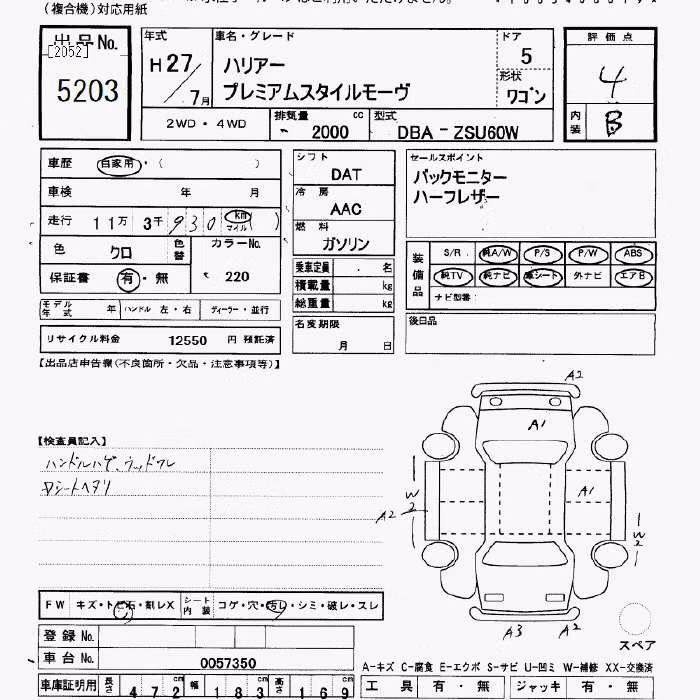 (複合機)対応用紙
出品No.
[2052]
5203
年式
H27/7月
車名・グレード
ハリアー
プレミアムスタイルモーヴ
ドア
5
形状
ワゴン
評価点
4
内装
B
2WD・4WD
排気量 cc
2000
型式
DBA-ZSU60W
車歴 自家用・( )
車検 年 月
走行 11万 3千930 km マイル ( )
色 クロ
色替
カラーNo.
220
保証書 有・無
モデル年式 年 ハンドル 左・右 ディーラー・並行
リサイクル料金 12550 円 預託済
シフト
DAT
冷房
AAC
燃料
ガソリン
乗車定員 . 名
積載量 kg
総重量 kg
名変期限
月 日
セールスポイント
バックモニター
ハーフレザー
装備品
S/R 純A/W P/S P/W ABS
純TV 純ナビ 革シート 外ナビ エアB
ナビ型番:
後日品
【出品店申告欄(不良箇所・欠品・注意事項等)】
【検査員記入】
ハンドルハゲ、ウッドワレ
シートヘタリ
A2
A1
A1
W2
A2
W2
A3
A2
スペア
FW キズ・トビ石・割レX シート内装 コゲ・穴・汚レ・シミ・破レ・スレ
登録No.
車台No. 0057350
車庫証明用 長さ 472cm 幅 183cm 高さ 169cm
A-キズ C-腐食 E-エクボ S-サビ U-凹ミ W-補修 XX-交換済
工具 有・無 ジャッキ 有・無